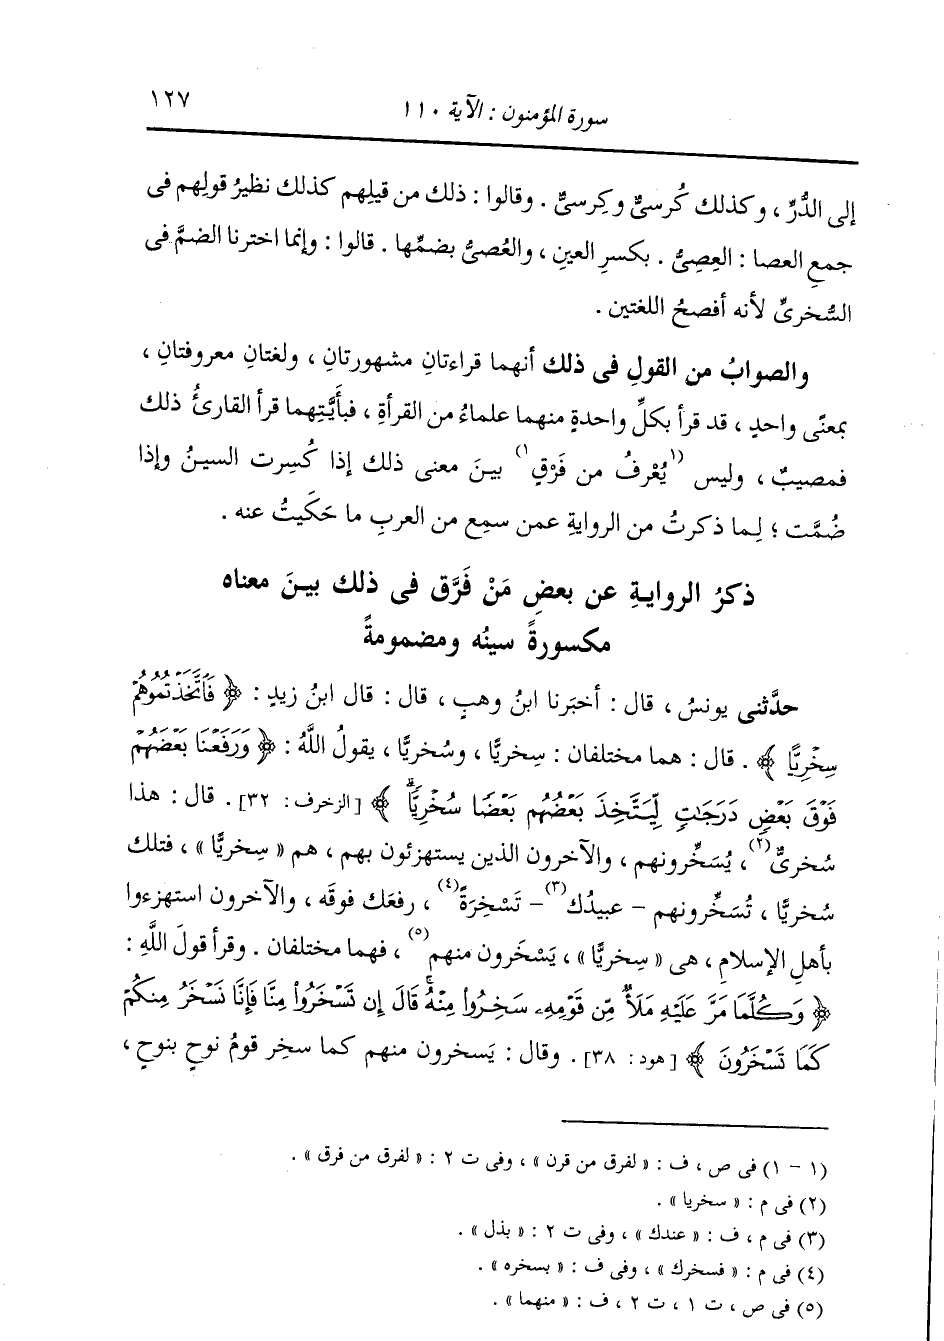 سورة المؤمنون : الآية ١١٠ ١٢٧
إلى الدُّرِّ ، وكذلك كُرسىٌّ وكِرسىٌّ . وقالوا : ذلك من قيلِهم كذلك نظيرُ قولِهم فى
جمعِ العصا : العِصِىُّ . بكسرِ العينِ ، والعُصىُّ بضمِّها . قالوا : وإنما اخترنا الضمَّ فى
السُّخرىِّ لأنه أفصحُ اللغتين .
والصوابُ من القولِ فى ذلك أنهما قراءتانِ مشهورتانِ ، ولغتانِ معروفتانِ ،
بمعنًى واحدٍ ، قد قرأ بكلِّ واحدةٍ منهما علماءُ من القرأةِ ، فبأَيَّتِهما قرأ القارئُ ذلك
فمصيبٌ ، وليس (١يُعْرفُ من فَرْقٍ١) بينَ معنى ذلك إذا كُسِرت السينُ وإذا
ضُمَّت ؛ لِما ذكرتُ من الروايةِ عمن سمِع من العربِ ما حَكَيتُ عنه .
ذكرُ الروايةِ عن بعضِ مَنْ فَرَّق فى ذلك بينَ معناه
مكسورةً سينُه ومضمومةً
حدَّثنى يونسُ ، قال : أخبَرنا ابنُ وهبٍ ، قال : قال ابنُ زيدٍ : ﴿ فَاتَّخَذْتُمُوهُمْ
سِخْرِيًّا ﴾ . قال : هما مختلفان : سِخريًّا ، وسُخريًّا ، يقولُ اللَّهُ : ﴿ وَرَفَعْنَا بَعْضَهُمْ
فَوْقَ بَعْضٍ دَرَجَٰتٍ لِّيَتَّخِذَ بَعْضُهُم بَعْضًا سُخْرِيًّا ﴾ [الزخرف: ٣٢] . قال : هذا
سُخرىٌّ(٢) ، يُسَخِّرونهم ، والآخرون الذين يستهزئون بهم ، هم « سِخريًّا » ، فتلك
سُخريًّا ، تُسَخِّرونهم - عبيدُك(٣) - تَسْخِرَةً(٤) ، رفعَك فوقَه ، والآخرون استهزءوا
بأهلِ الإسلامِ ، هى « سِخريًّا » ، يَسْخَرون منهم(٥) ، فهما مختلفان . وقرأ قولَ اللَّهِ :
﴿ وَكُلَّمَا مَرَّ عَلَيْهِ مَلَأٌ مِّن قَوْمِهِۦ سَخِرُوا۟ مِنْهُ ۚ قَالَ إِن تَسْخَرُوا۟ مِنَّا فَإِنَّا نَسْخَرُ مِنكُمْ
كَمَا تَسْخَرُونَ ﴾ [هود: ٣٨] . وقال : يَسخرون منهم كما سخِر قومُ نوحٍ بنوحٍ ،
(١ - ١) فى ص ، ف : « لفرق من قرن » ، وفى ت ٢ : « لفرق من فرق » .
(٢) فى م : « سخريا » .
(٣) فى م ، ف : « عندك » ، وفى ت ٢ : « بذل » .
(٤) فى م : « فسخرك » ، وفى ف : « بسخره » .
(٥) فى ص ، ت ١ ، ت ٢ ، ف : « منهما » .